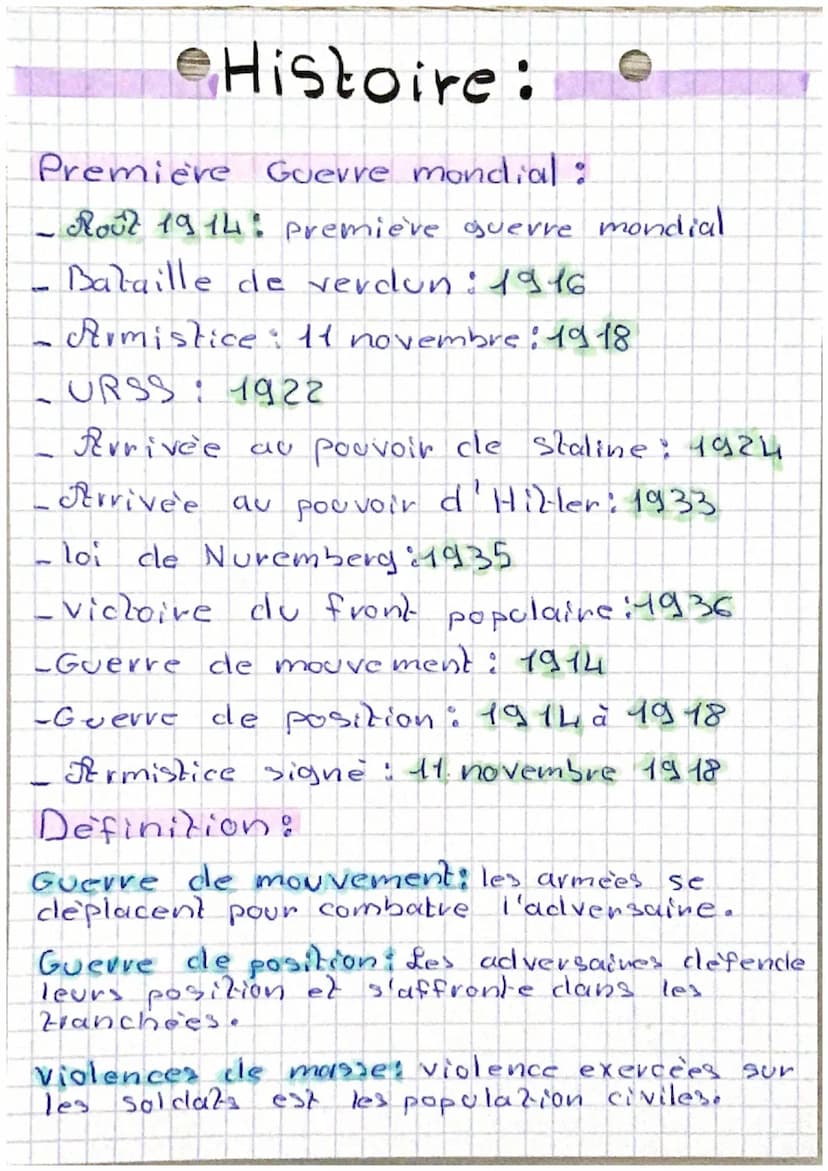 Histoire:
Première Guerre mondial :
- Août 1914: première guerre mondial
- Bataille de verdun : 1916
- Armistice : 11 novembre : 1918
- URSS : 1922
- Arrivée au pouvoir de Staline : 1924
- Arrivée au pouvoir d'Hitler : 1933
- loi de Nuremberg : 1935
- victoire du front populaire : 1936
- Guerre de mouvement : 1914
- Guerre de position : 1914 à 1918
- Armistice signé : 11 novembre 1918
Définition :
Guerre de mouvement : les armées se
déplacent pour combatre l'adversaire.
Guerre de position : Les adversaires défende
leurs position et s'affronte dans les
tranchées.
Violences de masse : violence exercées sur
les soldats est les population civiles.